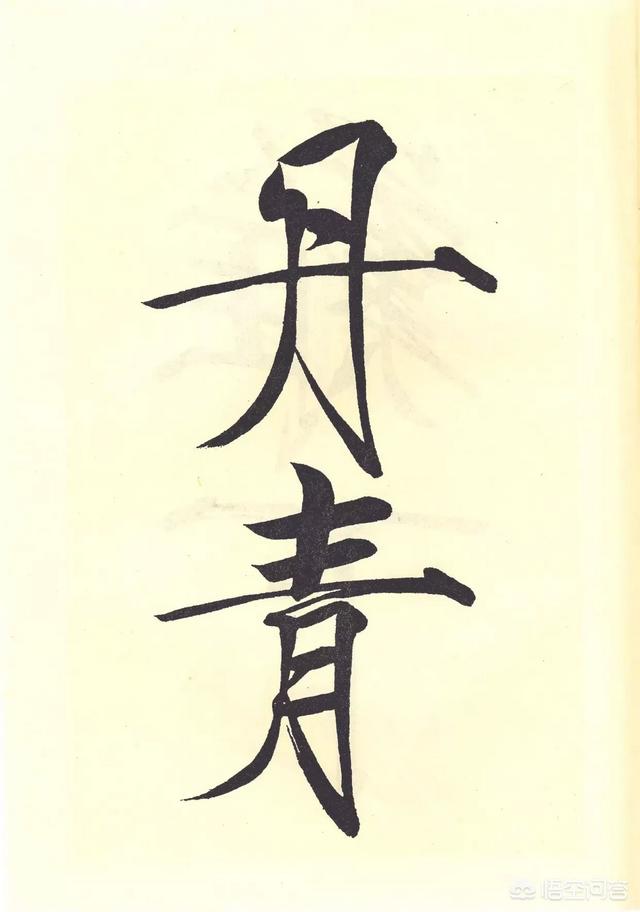 丹青
悟空问答